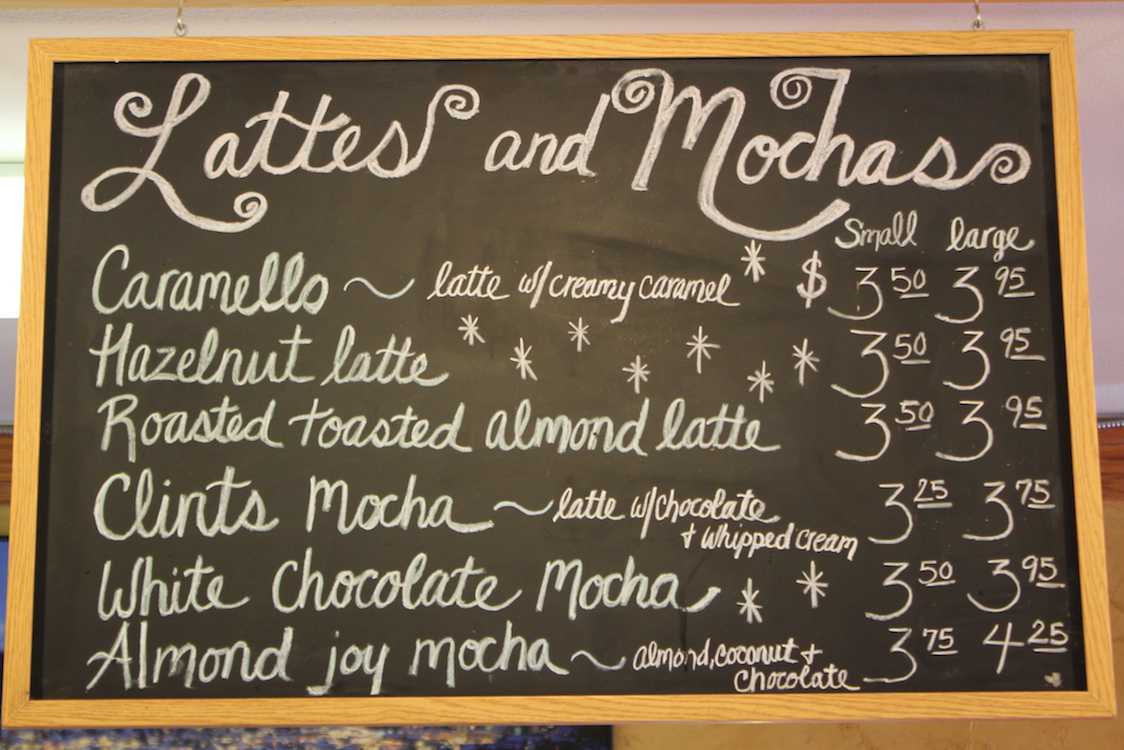 Lattes and Mochas
Small large
Caramello ~ latte w/ creamy caramel * $ 3 50 3 95
Hazelnut latte 3 50 3 95
Roasted toasted almond latte 3 50 3 95
Clints Mocha ~ latte w/chocolate 3 25 3 75
+ whipped cream
White Chocolate Mocha 3 50 3 95
Almond joy mocha ~ almond, coconut + 3 75 4 25
Chocolate